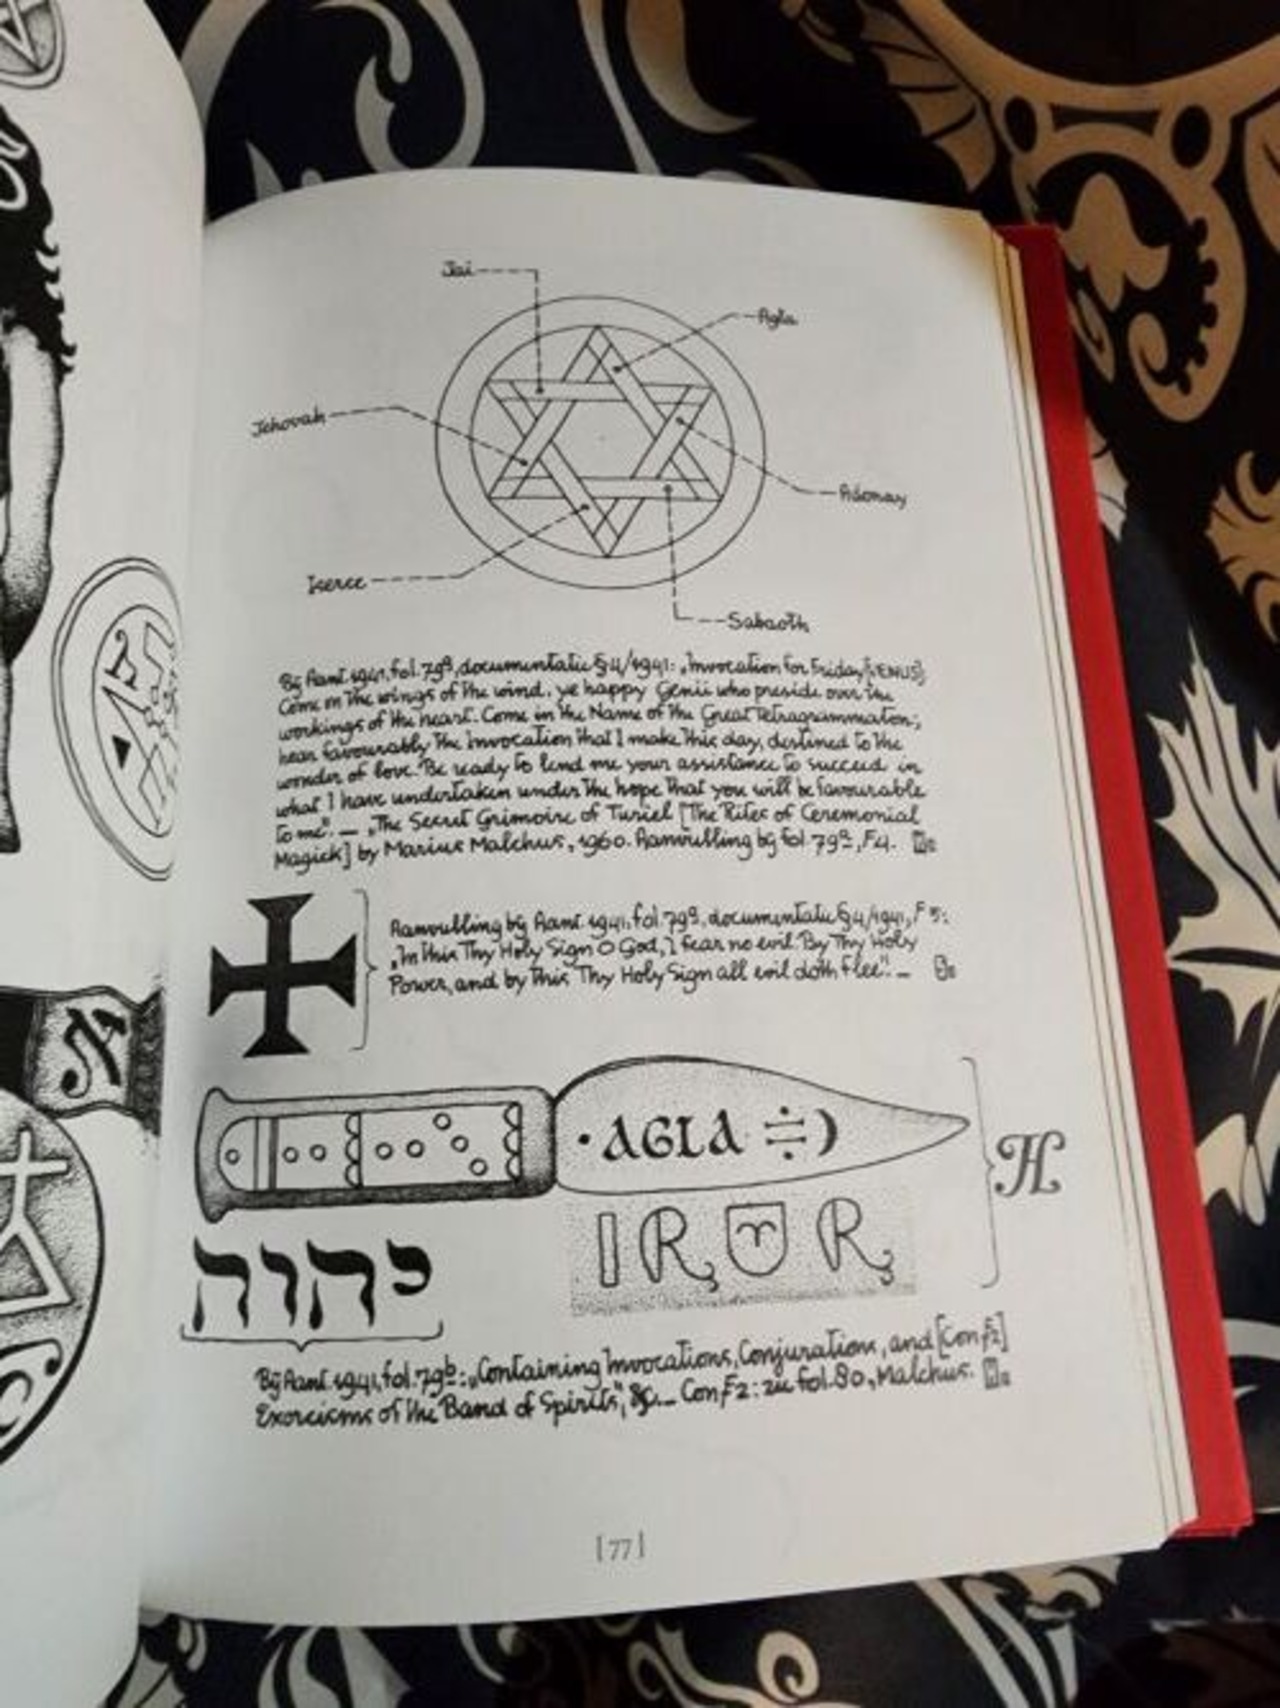 Jai
Agla
Jehovah
Adonay
Iserce
Sabaoth
Bÿ Aant. 1941, fol. 79ª, documentatie § 4/1941: „Invocation for Friday [VENUS];
Come on the wings of the wind, ye happy Genii who preside over the
workings of the heart. Come in the Name of the Great Tetragrammaton;
hear favourably the Invocation that I make this day, destined to the
wonder of love. Be ready to lend me your assistance to succeed in
what I have undertaken under the hope that you will be favourable
to me”. — „The Secret Grimoire of Turiel [The Rites of Ceremonial
Magick] by Marius Malchus, 1960. Aanvulling bÿ fol. 79ª, F4.
Aanvulling bÿ Aant. 1941, fol. 79ª, documentatie § 4/1941, F 5:
„In this Thy Holy Sign O God, I fear no evil. By Thy Holy
Power, and by this Thy Holy Sign all evil doth flee”. —
· AGLA ÷)
H
I R ♈ R
יהוה
Bÿ Aant. 1941, fol. 79ᵇ: „Containing Invocations, Conjurations, and [Con F2]
Exorcisms of the Band of Spirits”, &c. — Con F2: zie fol. 80, Malchus.
[77]